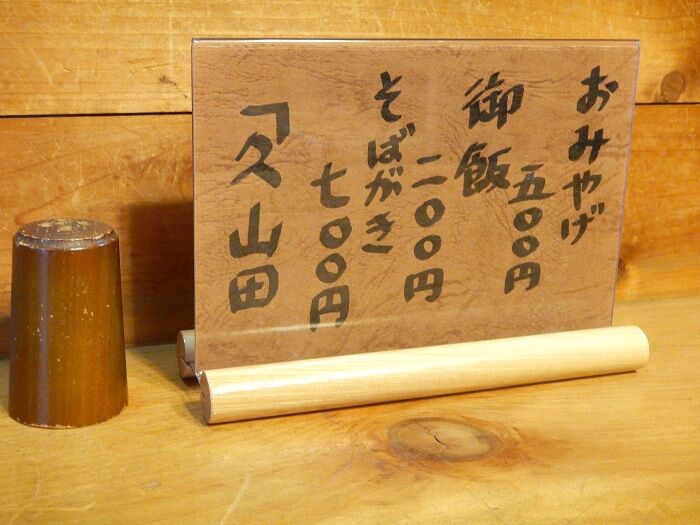 おみやげ
五〇〇円
御飯
二〇〇円
そばがき
七〇〇円
「久 山田